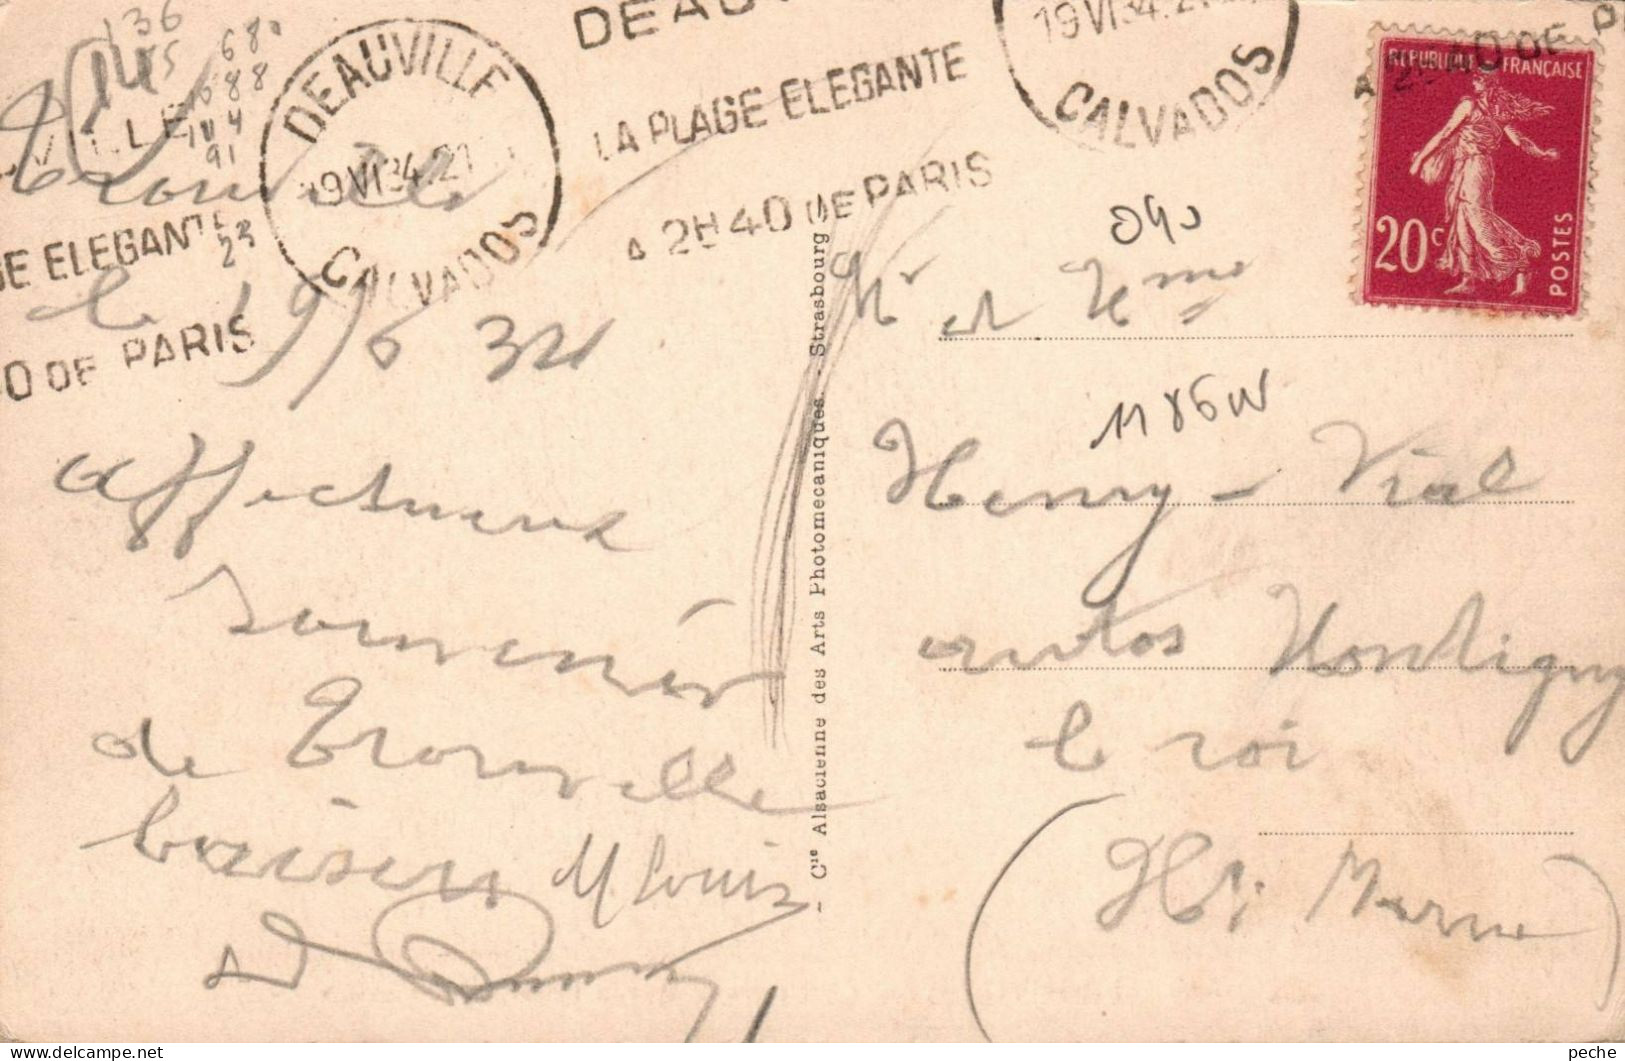 136
680
88
91
23
DEAUVILLE
19 VI 34.21
CALVADOS
LA PLAGE ELEGANTE
A 2H40 DE PARIS
19 VI 34.21
CALVADOS
VILLE
GE ELEGANTE
0 DE PARIS
A 2H40 DE
REPUBLIQUE FRANÇAISE
20c
POSTES
Trouville
le 19/6 34
affectueux
souvenir
de Trouville
baisers M Louis
Cie Alsacienne des Arts Photomecaniques - Strasbourg
090
Mr et Mme
1186W
Henry-Vial
autos Montigny
le roi
(Hte Marne)
peche